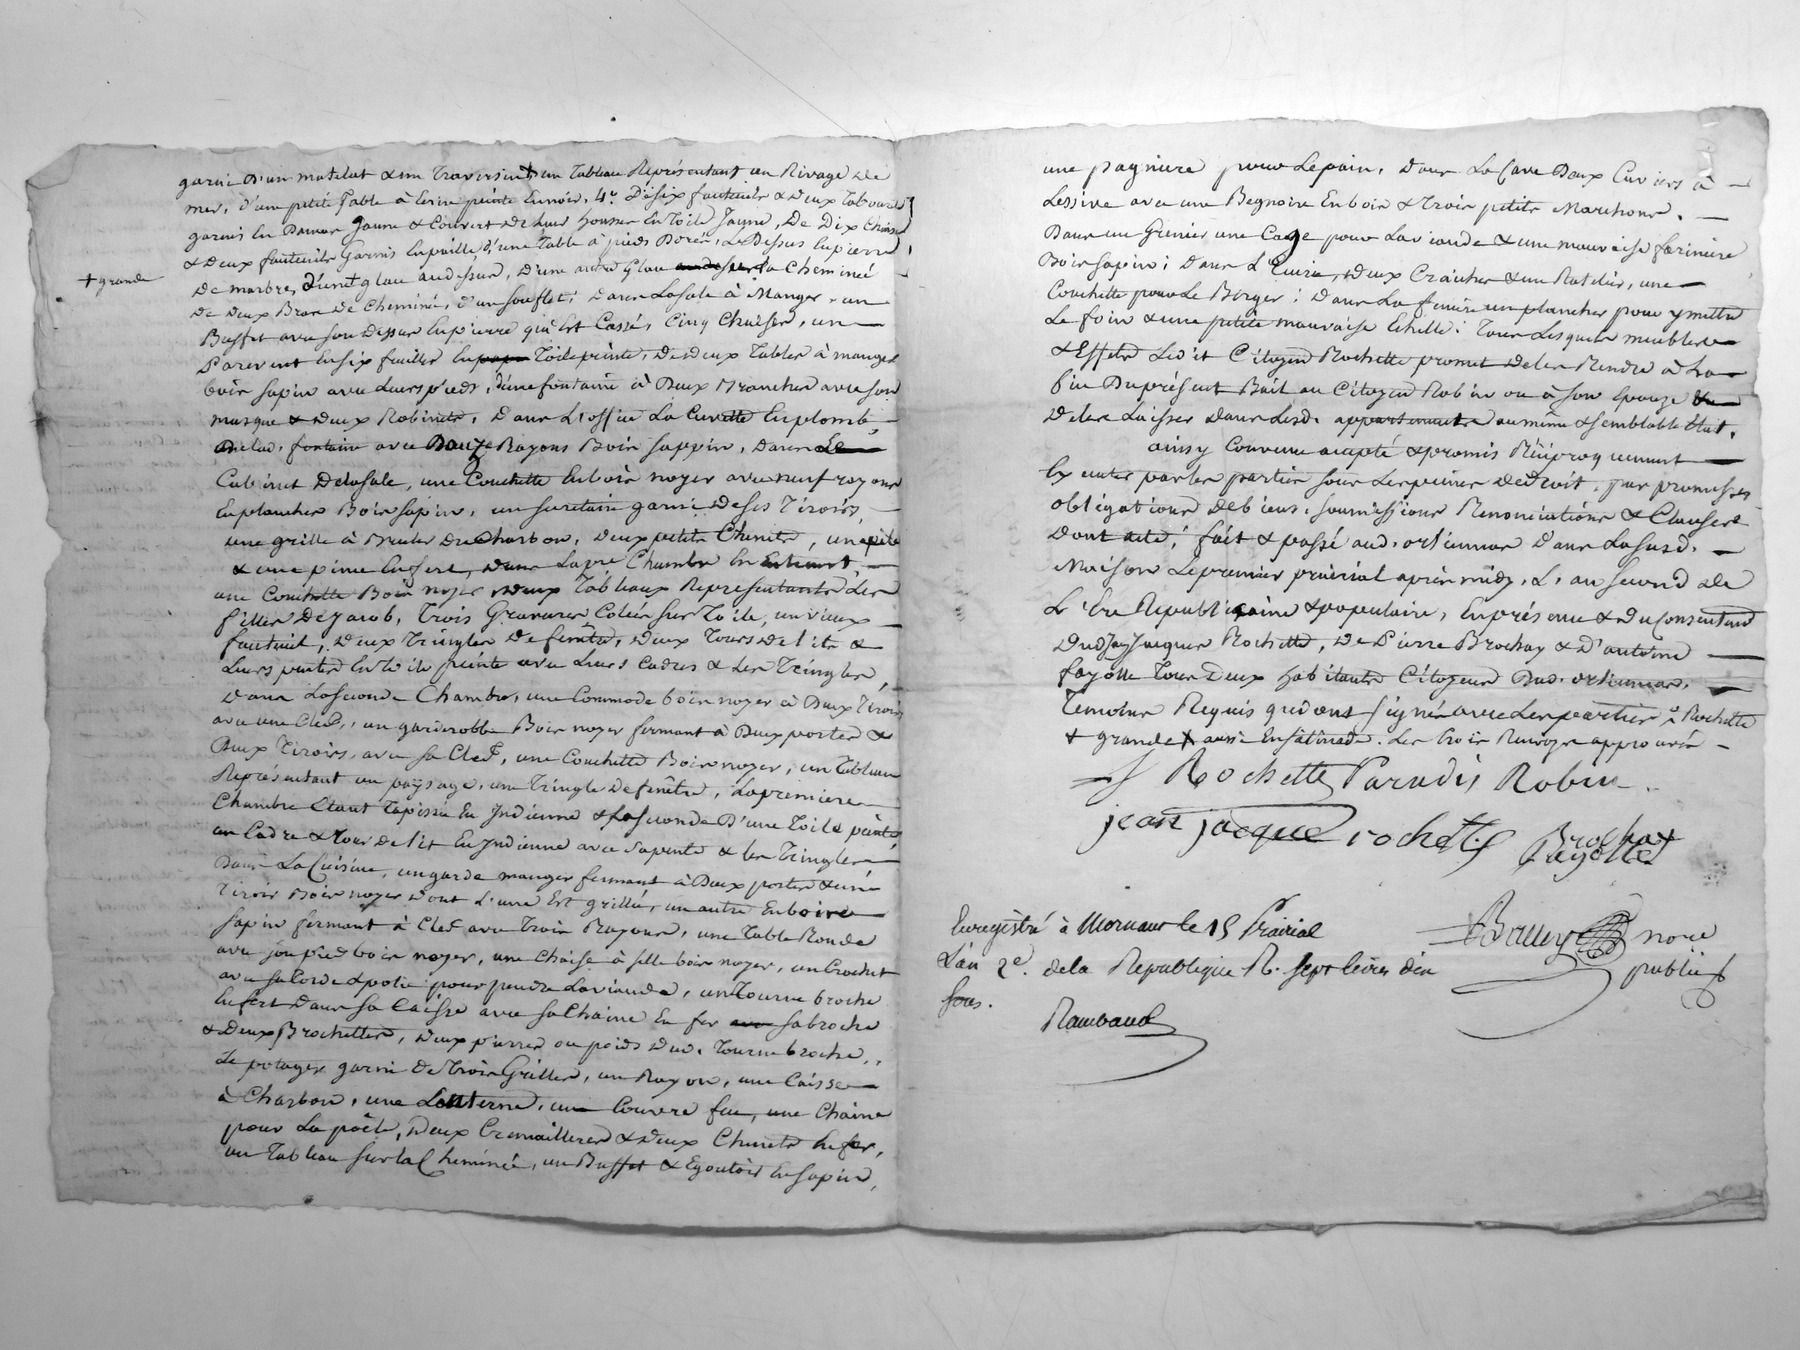 garni d'un matelat & un traversin + un tableau Représentant un Rivage de
mer, d'une petite table à Ecrire peinte en noir, 4º. De six fauteuils & deux tabourets
garnis En Damas Jaune & Couvert de leur housses En toile Jaune, De Dix Chaises
& Deux fauteuils Garnis En paille, d'une table à pieds Dorés, Le Dessus En pierre
+ grande
De marbre, d'une + glace au dessus, d'une autre glace la Cheminée
De deux Bras de Cheminée, d'un souflet; dans La sale à Manger, un
Buffet avec son dessus En pierre qui Est Cassé, Cinq Chaises, un
Paravent En six feuilles En toile peinte, De deux tables à manger
bois sapin avec Leurs pieds, d'une fontaine à Deux Branches avec son
masque & deux Robinets, Dans L'office La Cuvette En plomb
de lad. fontaine avec Douze Rayons Bois sappin, Dans Le
Cabinet De la sale, une Couchette En bois noyer avec neuf rayons
En planches Bois sapin, un secretaire garni De ses Tiroirs,
une grille à Bruler du Charbon, deux petits Chenets, une pele
& une pince En fer, dans La pre Chambre En Entrant,
une Couchette Bois noyer, deux Tableaux Representants Les
filles De Jacob, Trois Gravures Colées sur Toile, un vieux
fauteuil, Deux tringles De fenêtre, deux Tours de lits &
Leurs pentes En toile peinte avec Leurs Cadres & Les Tringles,
dans La seconde Chambre, une Commode bois noyer à Deux Tiroirs
avec une Clef, un garderobbe Bois noyer fermant à Deux portes &
Deux Tiroirs, avec sa Clef, une Couchette Bois noyer, un tableau
Représentant un paysage, une tringle de fenêtre, La premiere
Chambre Etant tapissée En Indienne & La seconde D'une toile peinte,
un Cadre & Tour de lit En Indienne avec sa pente & les Tringles
Dans La Cuisine, un garde manger fermant à Deux portes & une
Tiroir Bois noyer dont L'une Est grillée, un autre En bois
sapin fermant à Clef avec Trois Rayons, une Table Ronde
avec son pied bois noyer, une Chaise à selle bois noyer, un Crochet
avec sa Corde & polie pour pendre La viande, un tourne broche
En fer Dans sa Caisse avec sa Chaine En fer sa broche
& Deux Brochettes, deux pierres ou poids dud. Tourne broche,
Le potager garni De trois Grilles, un Rayon, une Caisse
à Charbon, une Lanterne, un Couvre feu, une Chaine
pour La poële, deux Cremailleres & deux Chenets En fer,
un Tableau sur la Cheminée, un Buffet & Egoutoir En sapin,
une pagniere pour Le pain, dans La Cave Deux Cuviers à
Lessive avec une Begnoire En bois & trois petits Marchons.
Dans un Grenier une Cage pour La viande & une mauvaise fariniere
Bois sapin; dans L'Ecurie, deux Craiches & un Ratelier, une
Couchette pour Le Berger; dans La feniere un plancher pour y mettre
Le foin & une petite mauvaise Echelle; Tous Lesquels meubles
& Effets Ledit Citoyen Rochette promet de les Rendre à La
fin Du présent Bail au Citoyen Robin ou à son Epouze &
De les Laisser dans Lesd. appartements au même & semblable Etat.
ainsy Convenu accepté & promis Réciproquement
Executer par les parties sous Les peines de droit, par promesses
obligations de biens, soumissions Renonciations & Clauses
Dont acte, fait & passé aud. ortiennas Dans La susd.
Maison Le premier prairial après midy, L'an second de
L'Ere Republicaine & populaire, En présence & du Consentement
Dud. Jacques Rochette, De Pierre Brochay & D'antoine
fayolle Tous Deux habitants Citoyens Dud. ortiennas,
Temoins Requis qui ont signé avec Les parties Rochette
+ grande + aussi Les trois Renvoys approuvés
Rochette Paradis Robin
jean jacque rochette Brochay
Fayolle
Enregistré à Mornant le 15 Prairial
L'an 2e. de la Republique R. sept livres dix
sous.
Rambaud
Bruley nore
public